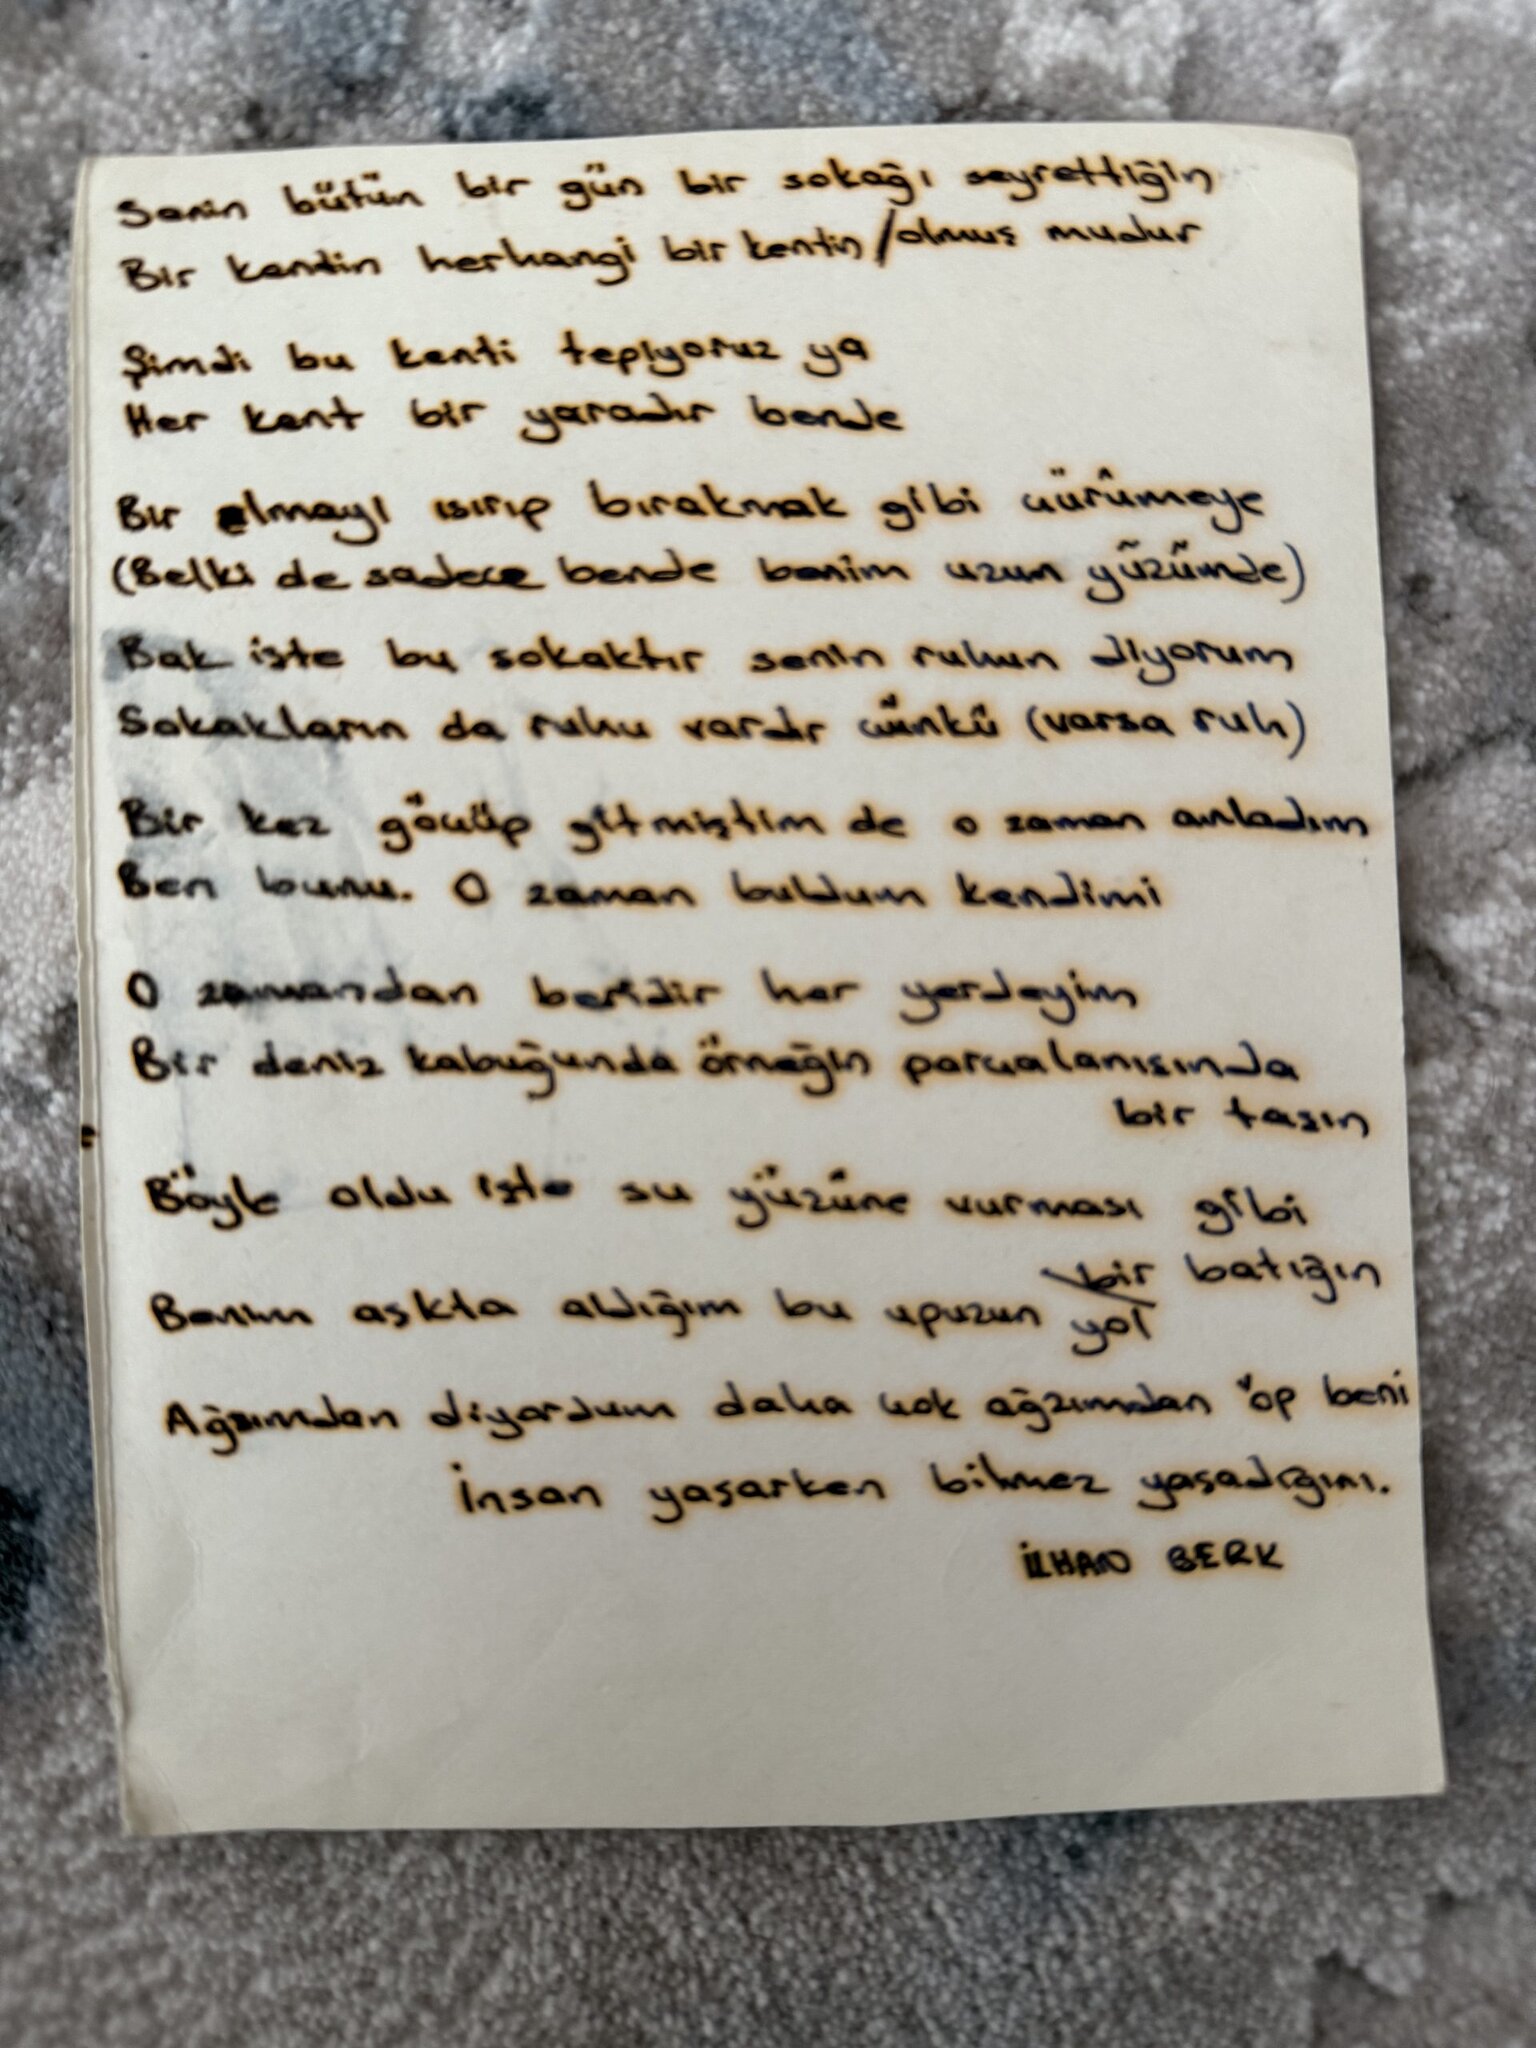 Senin bütün bir gün bir sokağı seyrettiğin
Bir kentin herhangi bir kentin/olmuş mudur
Şimdi bu kenti tepiyoruz ya
Her kent bir yaradır bende
Bir elmayı ısırıp bırakmak gibi çürümeye
(Belki de sadece bende benim uzun yüzümde)
Bak işte bu sokaktır senin ruhun diyorum
Sokakların da ruhu vardır çünkü (varsa ruh)
Bir kez göçüp gitmiştim de o zaman anladım
Ben bunu. O zaman buldum kendimi
O zamandan beridir her yerdeyim
Bir deniz kabuğunda örneğin parçalanışında
bir taşın
Böyle oldu işte su yüzüne vurması gibi
bir batığın
Benim aşkta aldığım bu upuzun yol
Ağzımdan diyordum daha çok ağzımdan öp beni
İnsan yaşarken bilmez yaşadığını.
İLHAN BERK